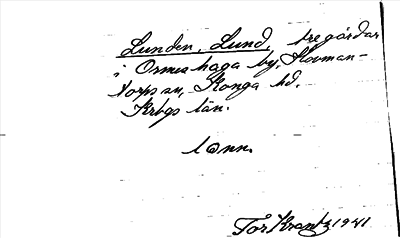 Lunden, Lund, tre gårdar
i Ormeshaga by, Kovman-
torps sn, Konga hd.
Krbgs län.
Tor Krantz 1941